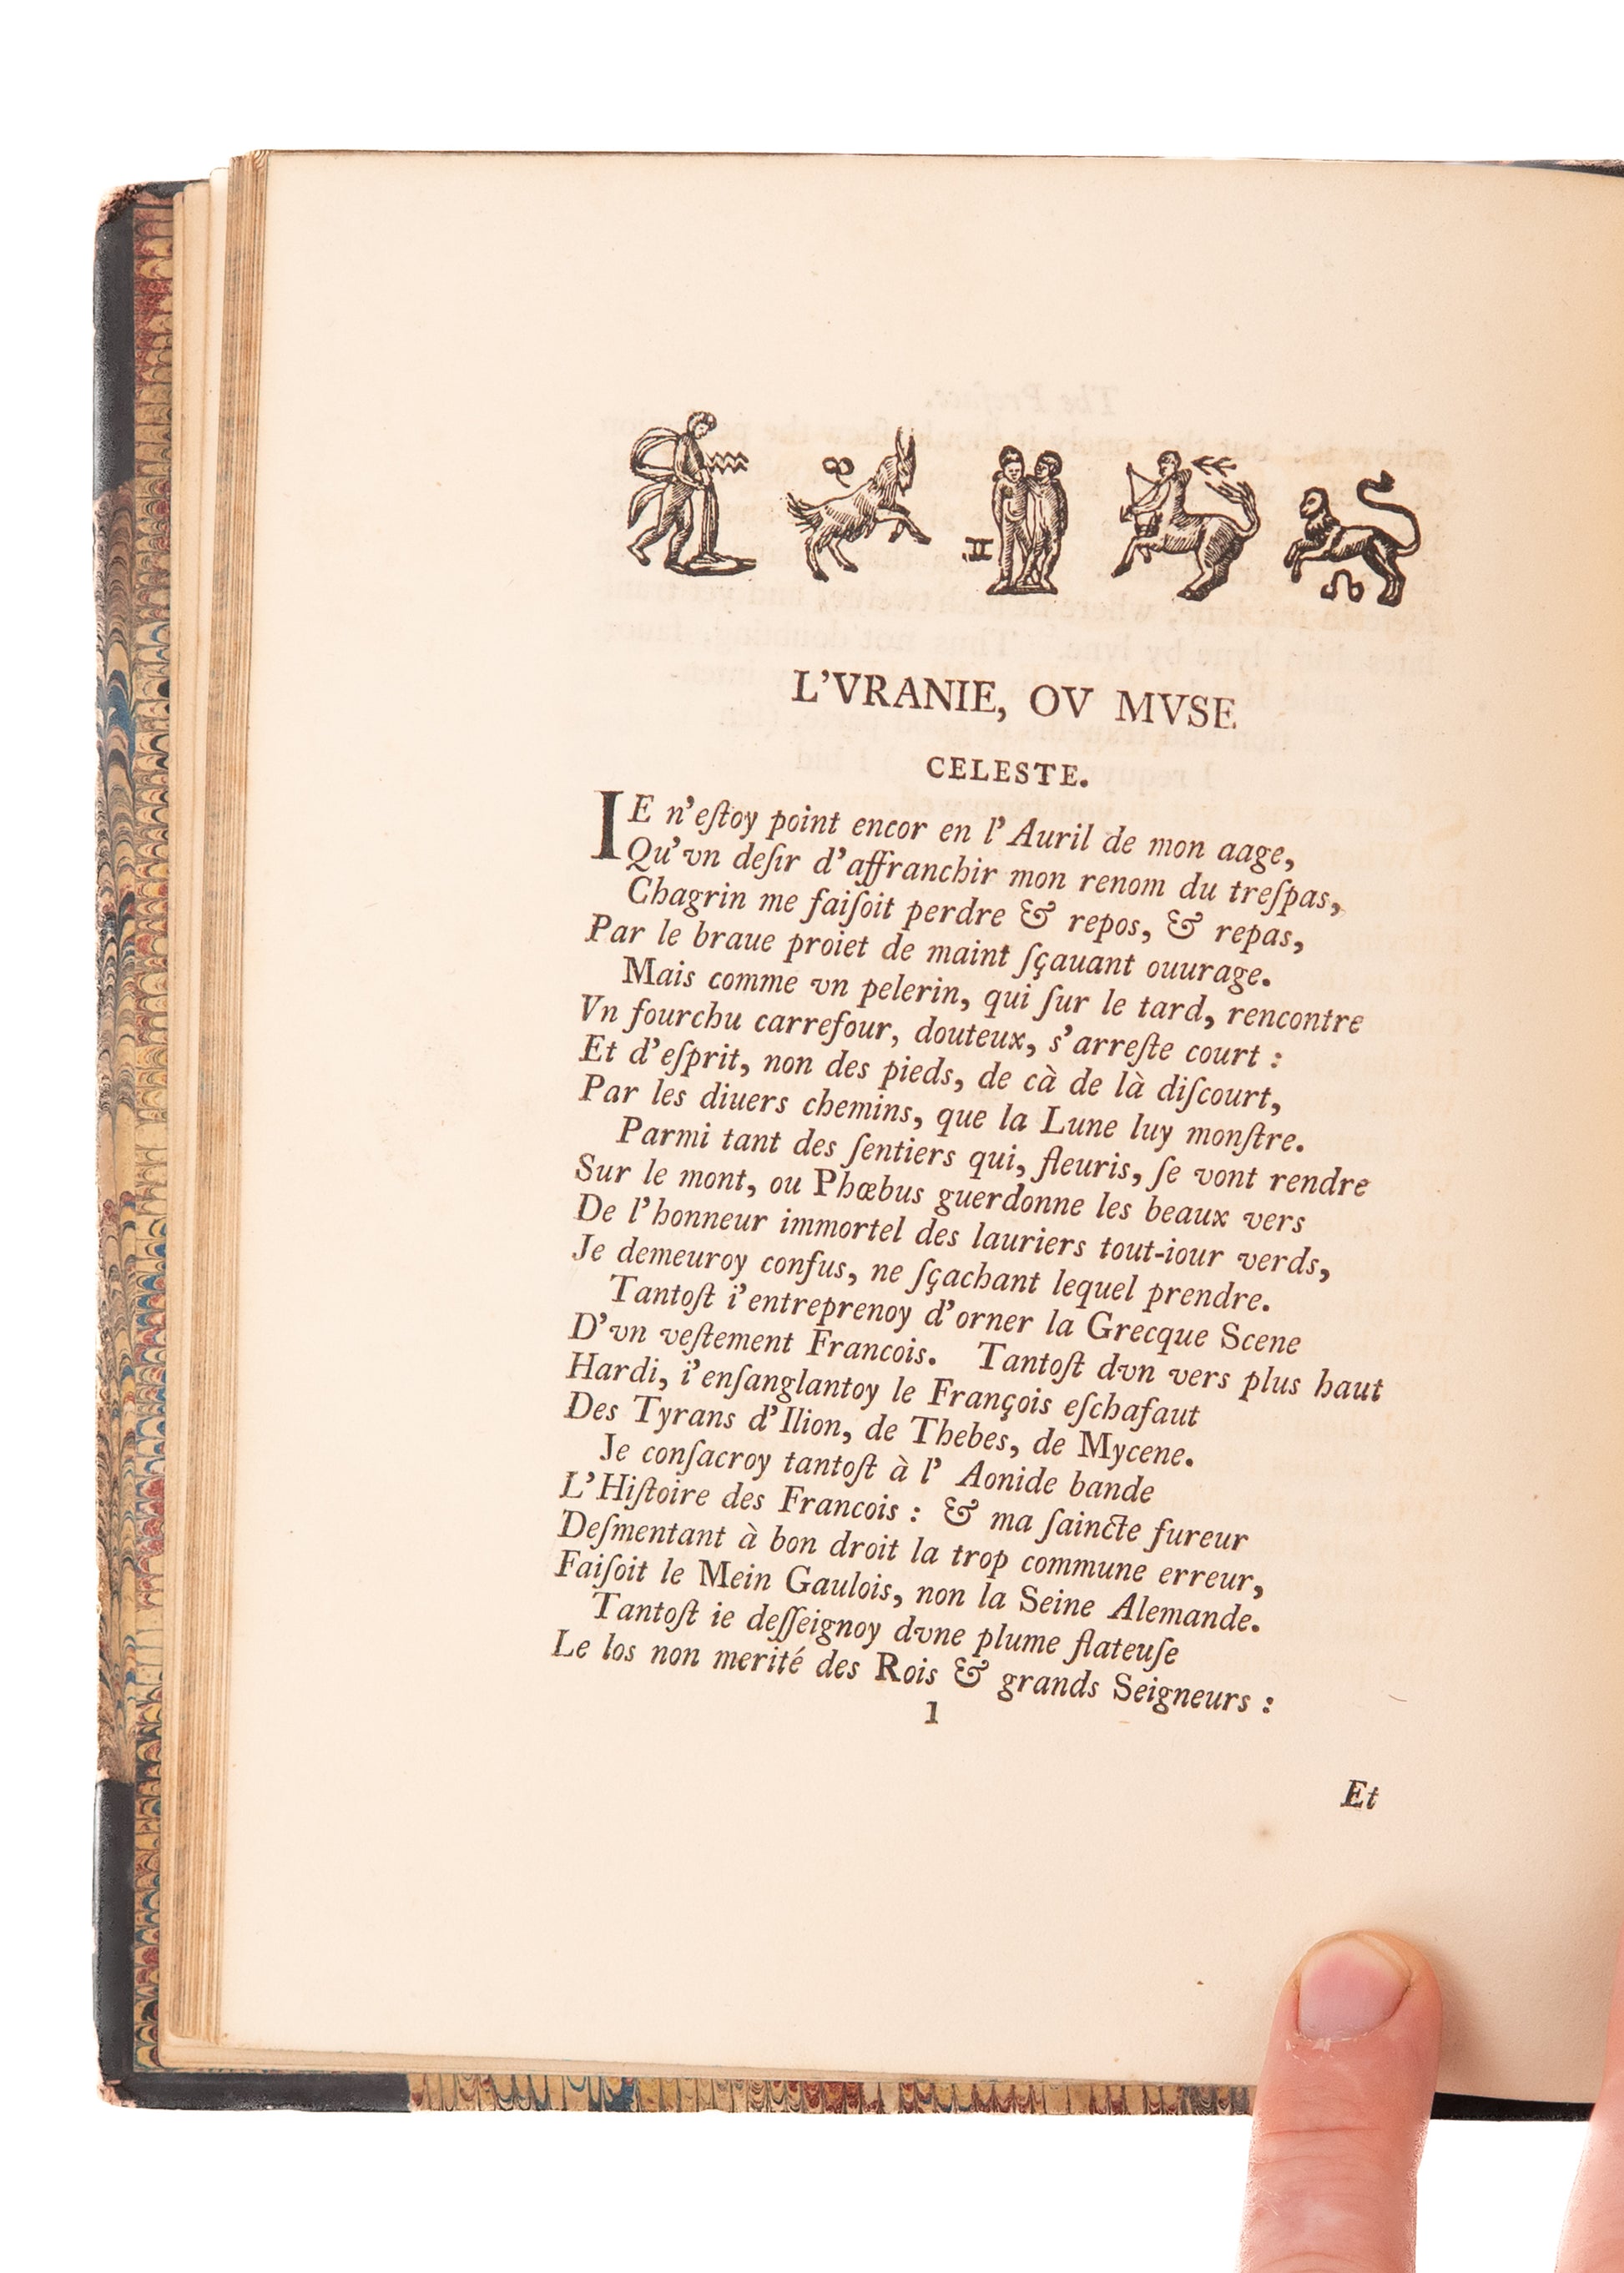 L'VRANIE, OV MVSE
CELESTE.
IE n'eſtoy point encor en l' Auril de mon aage,
Qu'vn deſir d'affranchir mon renom du treſpas,
Chagrin me faiſoit perdre & repos, & repas,
Par le braue proiet de maint ſçauant ouurage.
Mais comme vn pelerin, qui ſur le tard, rencontre
Vn fourchu carrefour, douteux, s'arreſte court :
Et d'eſprit, non des pieds, de cà de là diſcourt,
Par les diuers chemins, que la Lune luy monſtre.
Parmi tant des ſentiers qui, fleuris, ſe vont rendre
Sur le mont, ou Phœbus guerdonne les beaux vers
De l'honneur immortel des lauriers tout-iour verds,
Je demeuroy confus, ne ſçachant lequel prendre.
Tantoſt i'entreprenoy d'orner la Grecque Scene
D'vn veſtement Francois. Tantoſt dvn vers plus haut
Hardi, i'enſanglantoy le François eſchafaut
Des Tyrans d'Ilion, de Thebes, de Mycene.
Je conſacroy tantoſt à l' Aonide bande
L'Hiſtoire des Francois : & ma ſaincte fureur
Deſmentant à bon droit la trop commune erreur,
Faiſoit le Mein Gaulois, non la Seine Alemande.
Tantoſt ie deſſeignoy dvne plume flateuſe
Le los non merité des Rois & grands Seigneurs :
1
Et